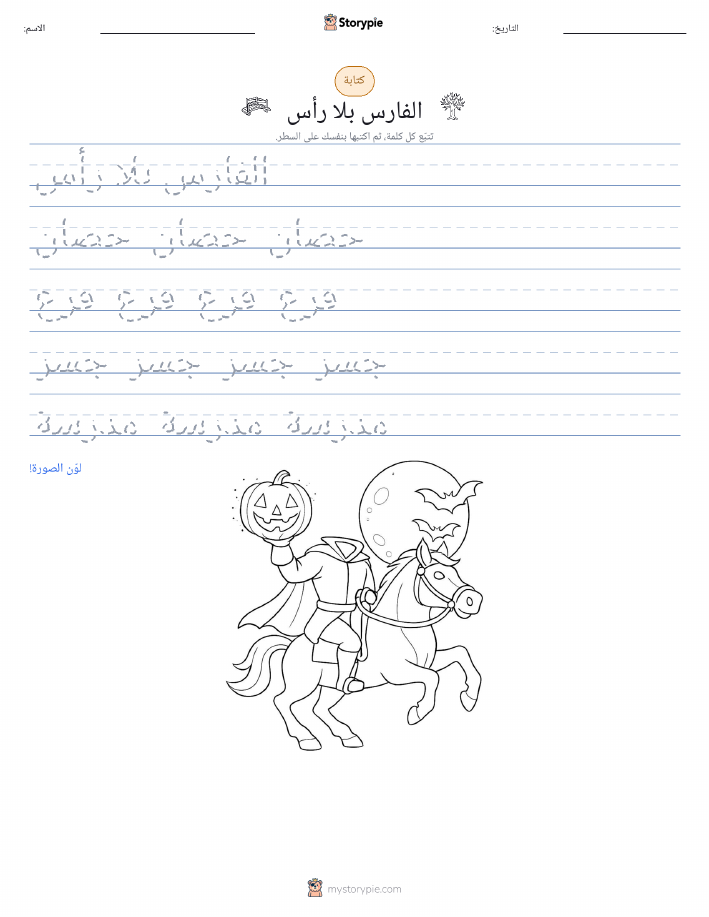 الاسم:
Storypie
التاريخ:
كتابة
الفارس بلا رأس
تتبّع كل كلمة، ثم اكتبها بنفسك على السطر.
الفارس بلا رأس
حصان حصان حصان
قرع قرع قرع قرع
جسر جسر جسر جسر
مدرسة مدرسة مدرسة
لوّن الصورة!
mystorypie.com